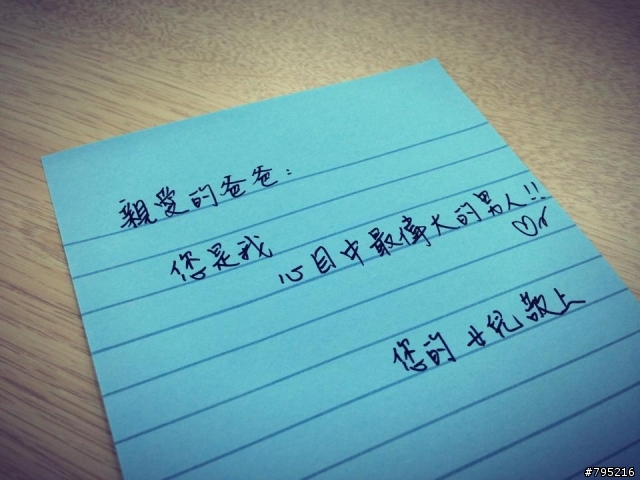 親愛的爸爸：
您是我心目中最偉大的男人!!
♡
您的女兒敬上
#795216